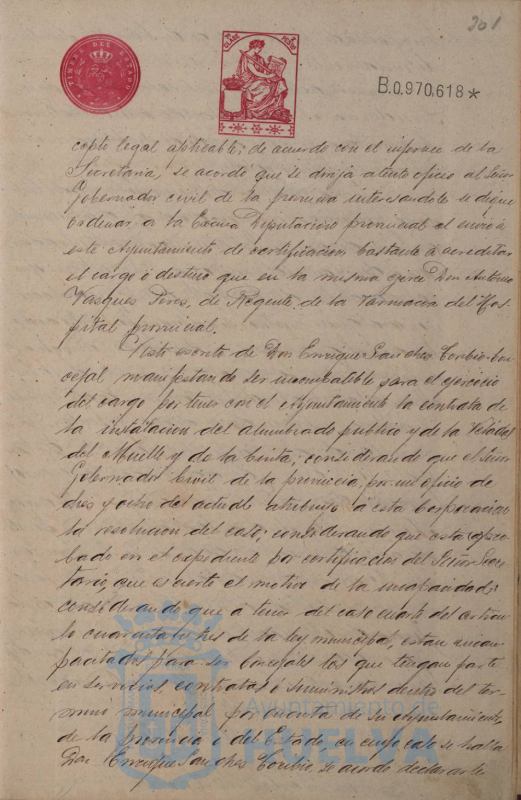 201
TIMBRE DEL ESTADO
B.0.970.618*
cepto legal aplicable; de acuerdo con el informe de la
Secretaría, se acordó que se dirija atento oficio al Señor
Gobernador civil de la provincia interesandole se digne
ordenar a la Excma Diputacion provincial el envio á
este Ayuntamiento de certificacion bastante á acreditar
el cargo ó destino que en la misma ejerce Don Antonio
Vasques Peres, de Regente de la Farmacia del Hos-
pital provincial.
Visto escrito de Don Enrique Sanches Toribio Con-
cejal manifestando ser incompatible para el ejercicio
del cargo por tener con el Ayuntamiento la contrata de
la instalacion del alumbrado publico y de la
del Muelle y de la Cinta; considerando que el Señor
Gobernador Civil de la provincia, por un oficio de
dies y ocho del actual atribuye á esta Corporacion
la resolucion del caso; considerando que está apro-
bado en el expediente por certificacion del Señor Secre-
tario, que es cierto el motivo de la incapacidad;
considerando que á tenor del caso cuarto del artícu-
lo cuarenta y tres de la ley municipal, estan incap-
pacitados para ser Concejales los que tengan parte
en servicios, contratas ó suministros dentro del ter-
mino municipal por cuenta de su Ayuntamiento,
de la provincia ó del Estado, en cuyo caso se halla
Don Enrique Sanches Toribio se acordó declararle
Ayuntamiento de
HUELVA